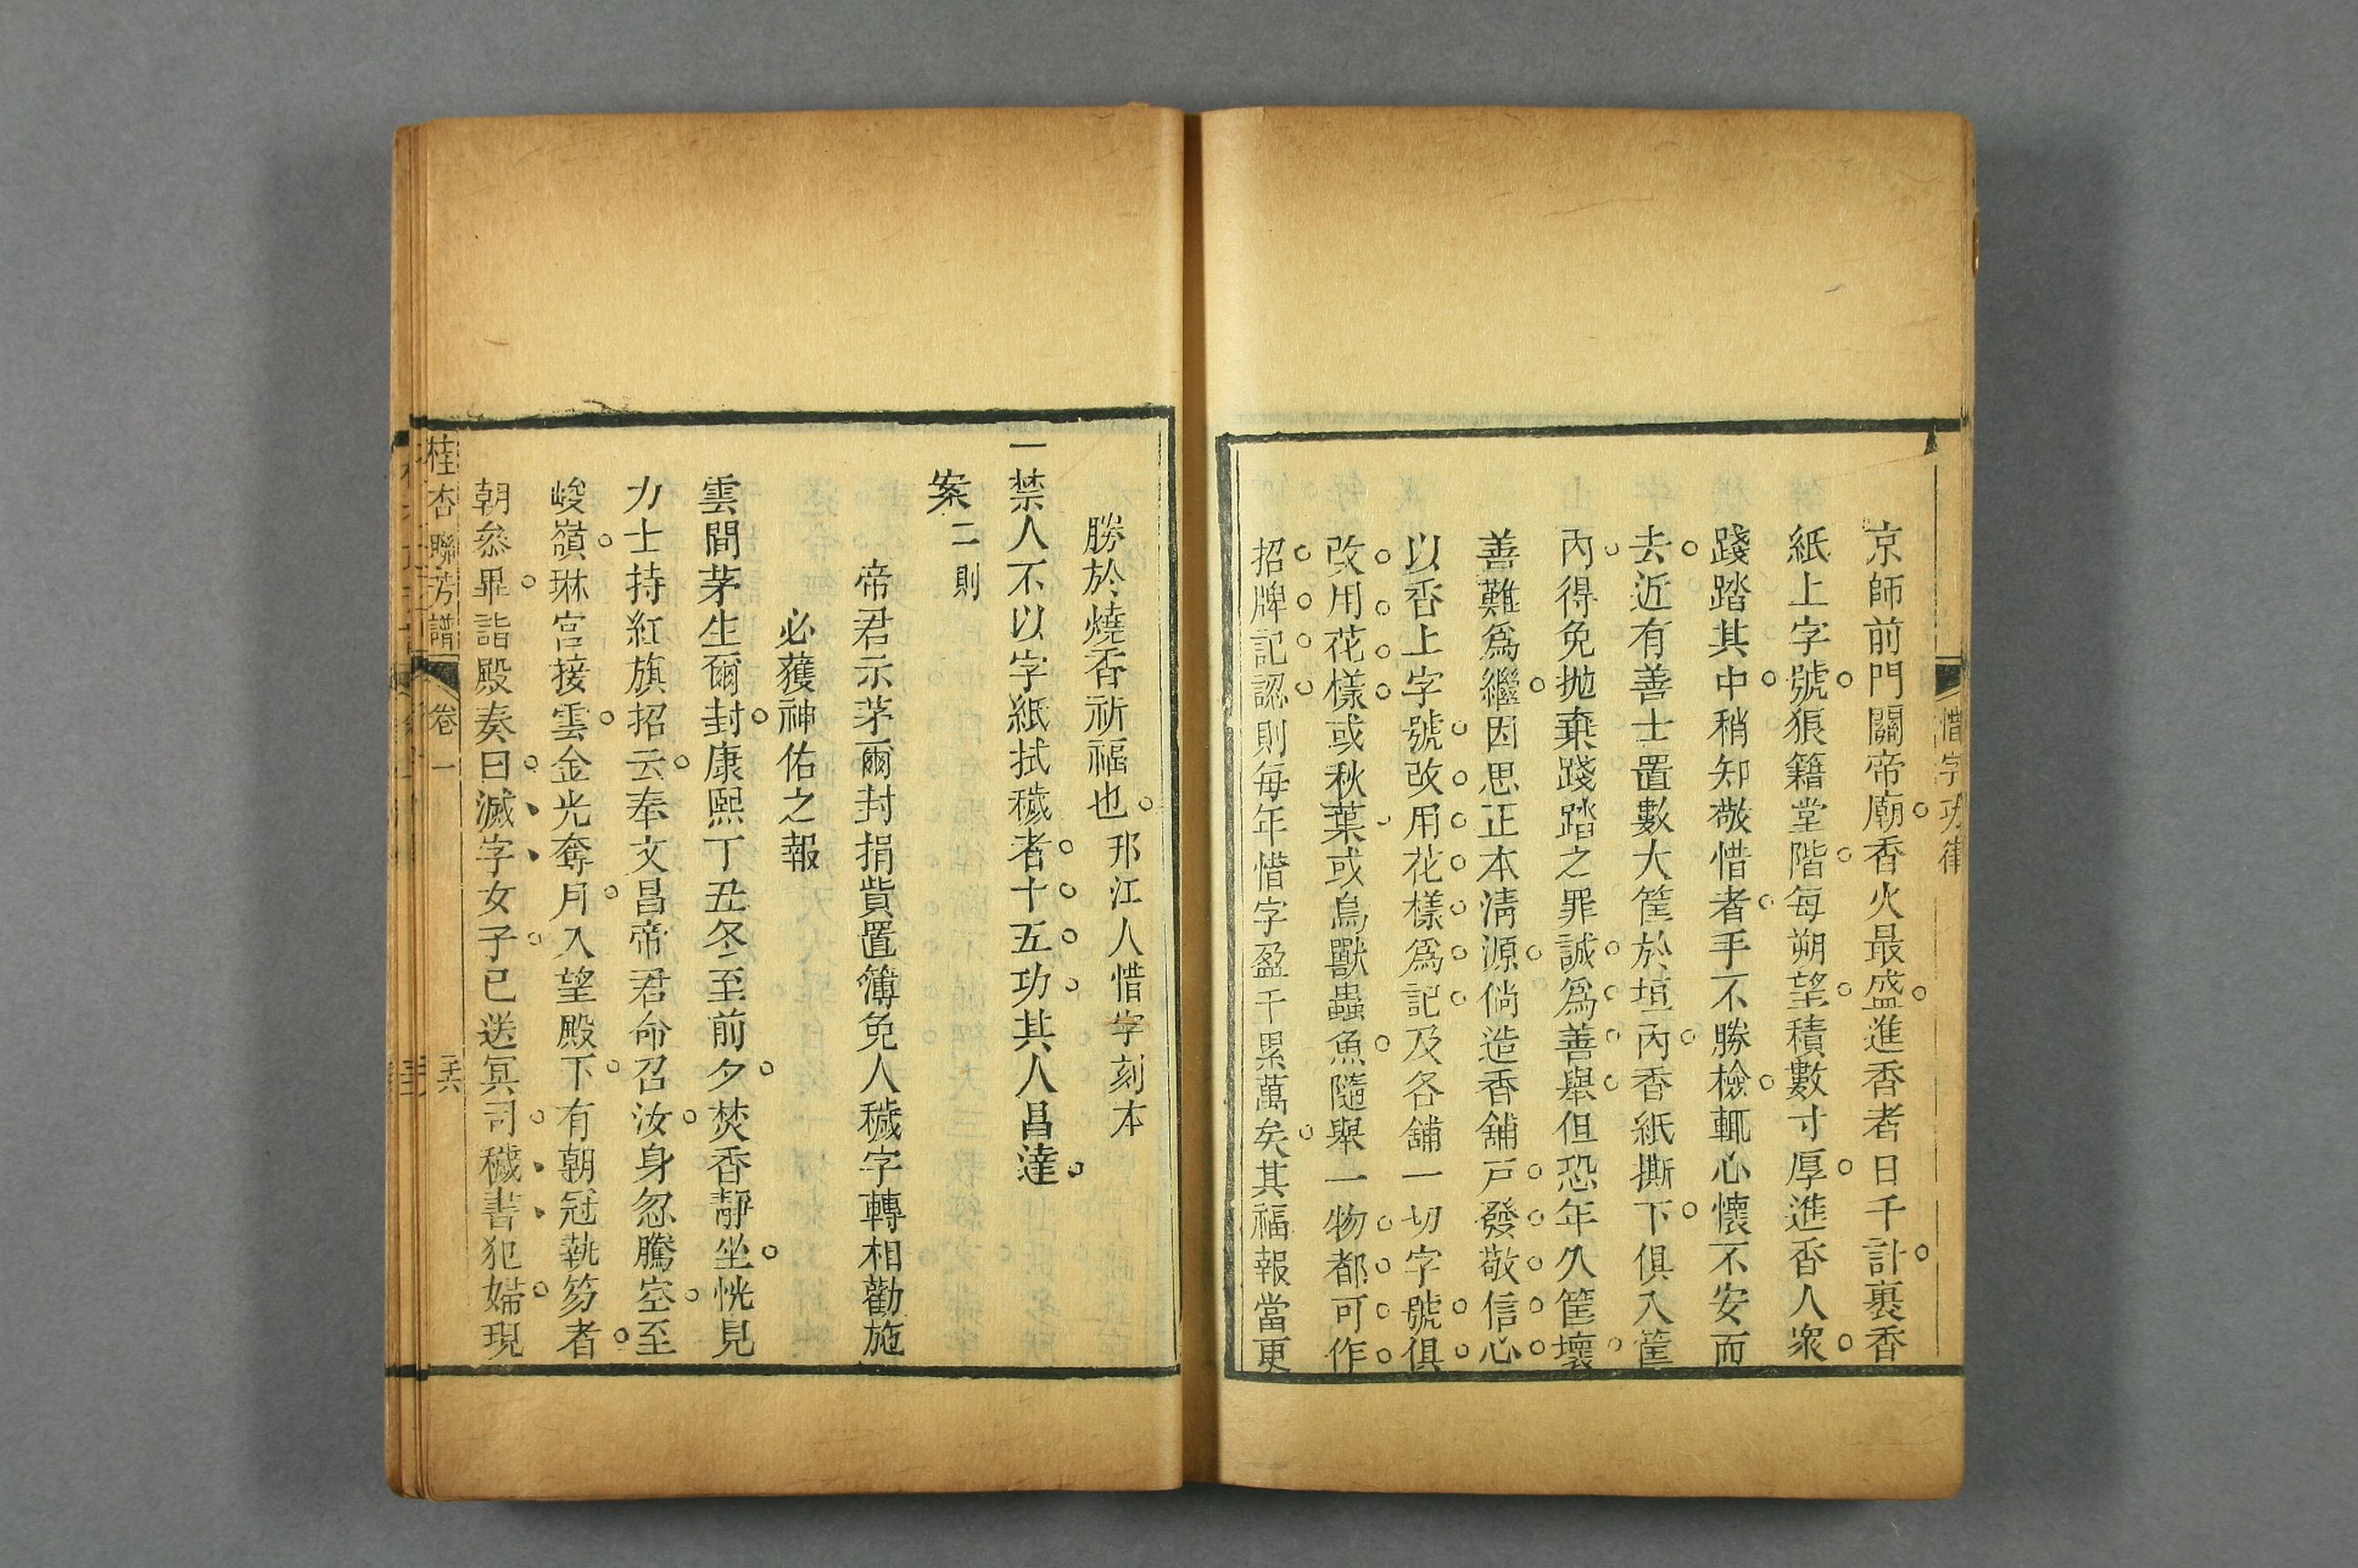 惜字功律
京師前門關帝廟。香火最盛。進香者日千計。裹香
紙上字號。狼籍堂階。每朔望。積數寸厚。進香人衆。
踐踏其中。稍知敬惜者。手不勝檢。輒心懷不安而
去。近有善士置數大筐於垣內。香紙撕下。俱入筐
內。得免抛棄踐踏之罪。誠。爲。善。舉。但恐年久筐壞。
善難爲繼。因思正本淸源。倘造香舖戸。發。敬。信。心。
以香上字號。改。用。花。樣。爲。記。及各舖一切字號。俱。
改。用。花。樣。或秋葉、或鳥獸蟲魚。隨舉一物。都。可。作。
招。牌。記。認。則每年惜字盈千累萬矣。其福報當更
勝於燒香祈福也。邗江人惜字刻本
一禁人不以字紙拭穢者。十。五。功。其人昌達。
案二則
帝君示茅爾封捐貲置簿免人穢字轉相勸施
必獲神佑之報
雲間茅生爾封。康熙丁丑冬至前夕。焚香靜坐。恍見
力士持紅旗招云。奉文昌帝君命召汝。身忽騰空。至
峻嶺。琳宮接雲。金光奪月。入望殿下。有朝冠執笏者。
朝叅畢。詣殿奏曰。滅、字、女子。已送冥司。穢、書、犯婦。現
桂杏聯芳譜
卷一